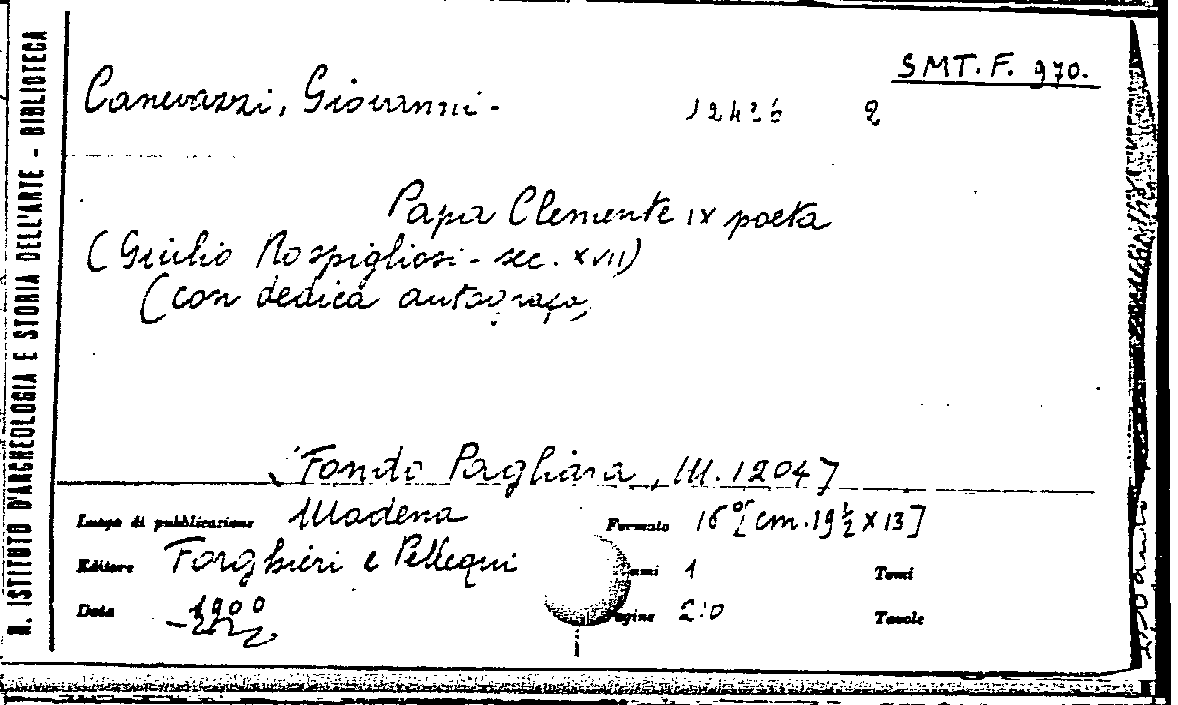 SMT. F. 970.
Canevazzi, Giovanni -
12426 2
Papa Clemente IX poeta
(Giulio Rospigliosi - sec. XVII)
(con dedica autografa)
[Fondo Pagliara, III. 1204]
Luogo di pubblicazione Modena
Formato 16° [cm. 19 ½ X 13]
Editore Forghieri e Pellequi
1
Tomi
Data 1900
Tavole
R. ISTITUTO D'ARCHEOLOGIA E STORIA DELL'ARTE - BIBLIOTECA